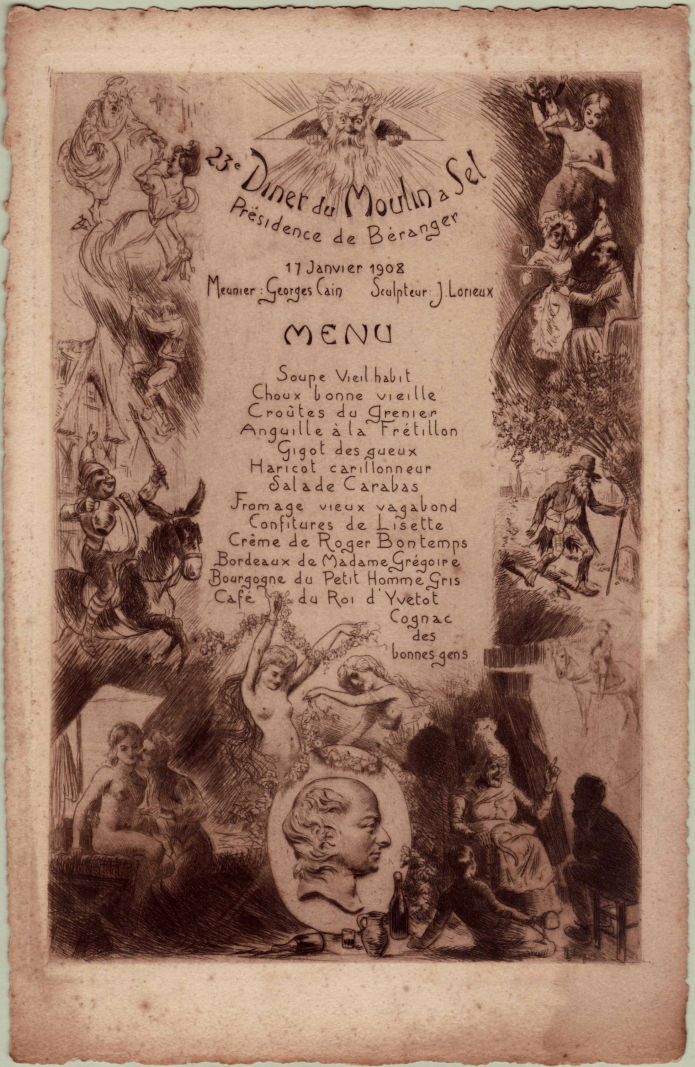 23e Diner du Moulin a Sel
Présidence de Béranger
17 Janvier 1908
Meunier : Georges Cain Sculpteur : J. Lorieux
MENU
Soupe Vieil habit
Choux bonne vieille
Croûtes du Grenier
Anguille à la Frétillon
Gigot des gueux
Haricot carillonneur
Salade Carabas
Fromage vieux vagabond
Confitures de Lisette
Crême de Roger Bontemps
Bordeaux de Madame Grégoire
Bourgogne du Petit Homme Gris
Café du Roi d'Yvetot
Cognac
des
bonnes gens